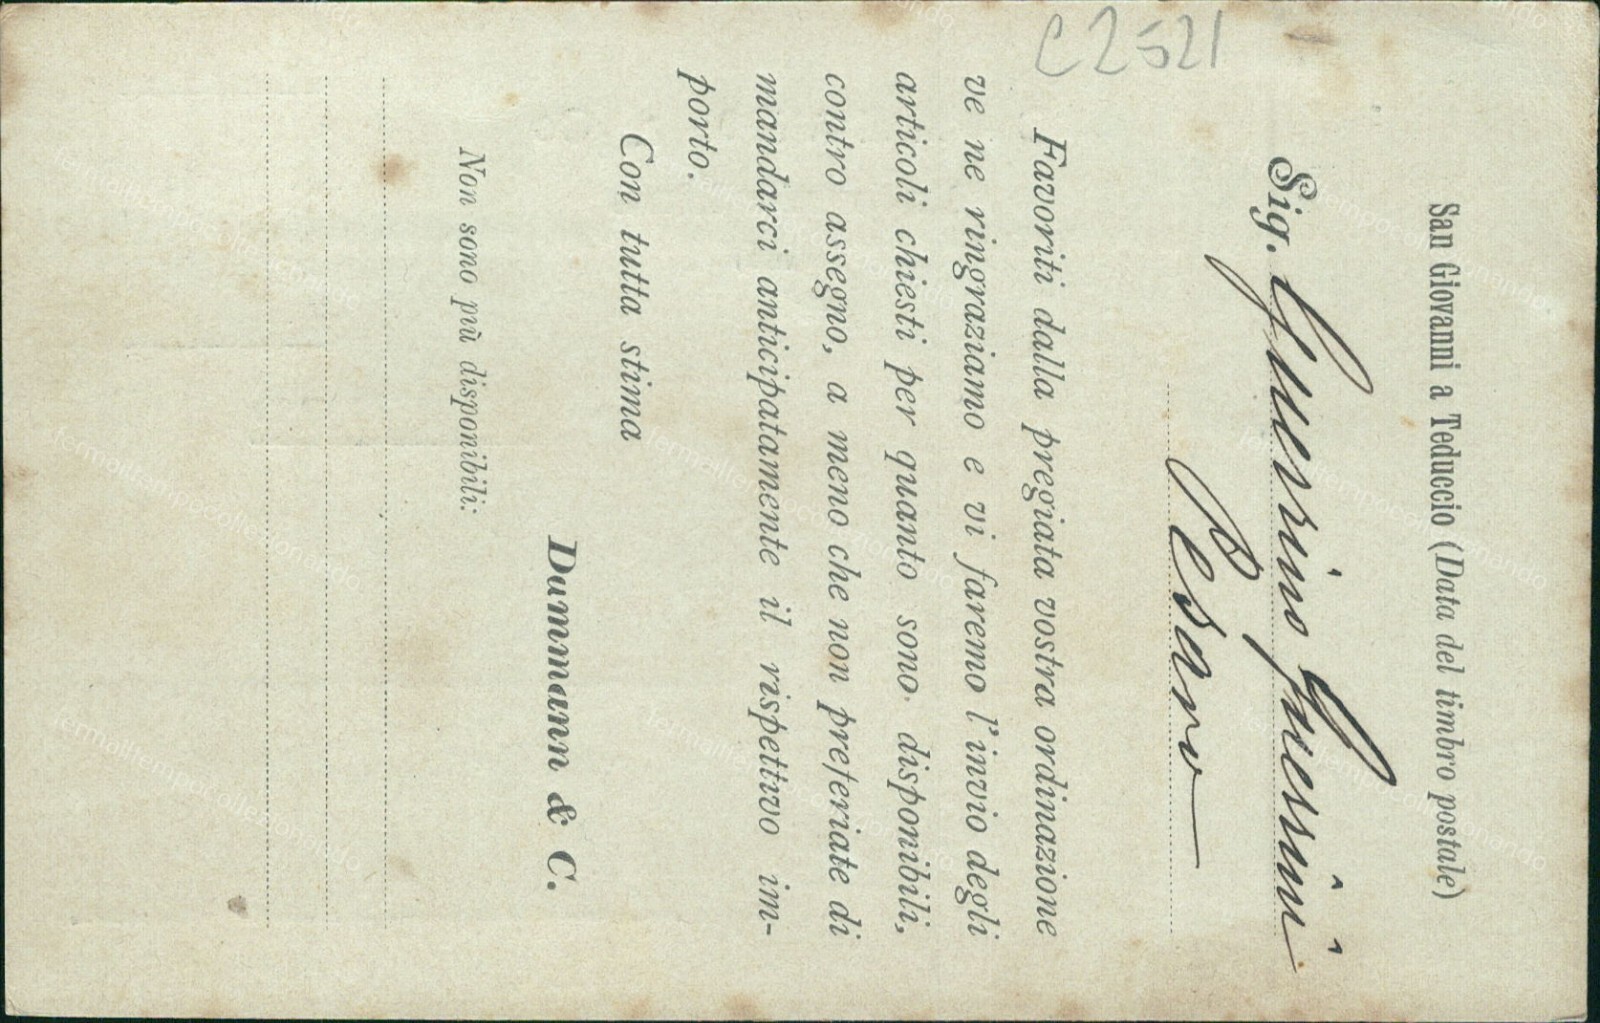 C2521
San Giovanni a Teduccio (Data del timbro postale)
Sig. Guerrino Guessini
Pesaro
Favoriti dalla pregiata vostra ordinazione
ve ne ringraziamo e vi faremo l'invio degli
articoli chiesti per quanto sono disponibili,
contro assegno, a meno che non preferiate di
mandarci anticipatamente il rispettivo im-
porto.
Con tutta stima
Dammann & C.
Non sono più disponibili:
fermailtempocollezionando